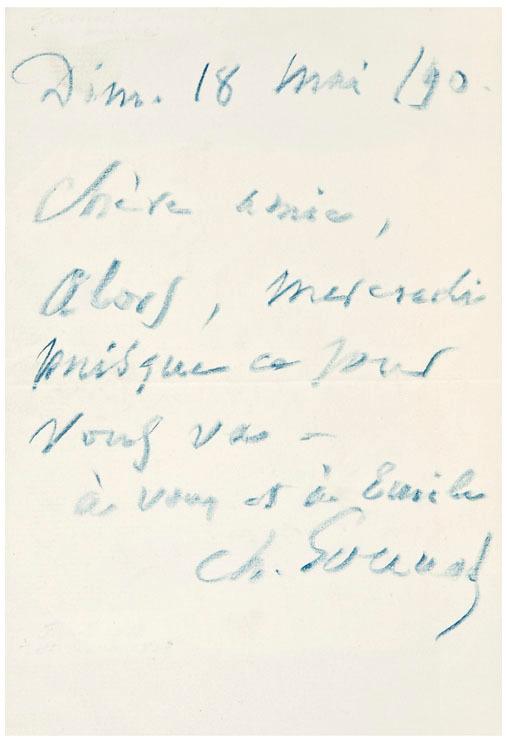 Dim. 18 mai /90.
Chère amie,
Alors, mercredi
puisque ce jour
vous va –
à vous et à Emile
Ch. Gounod